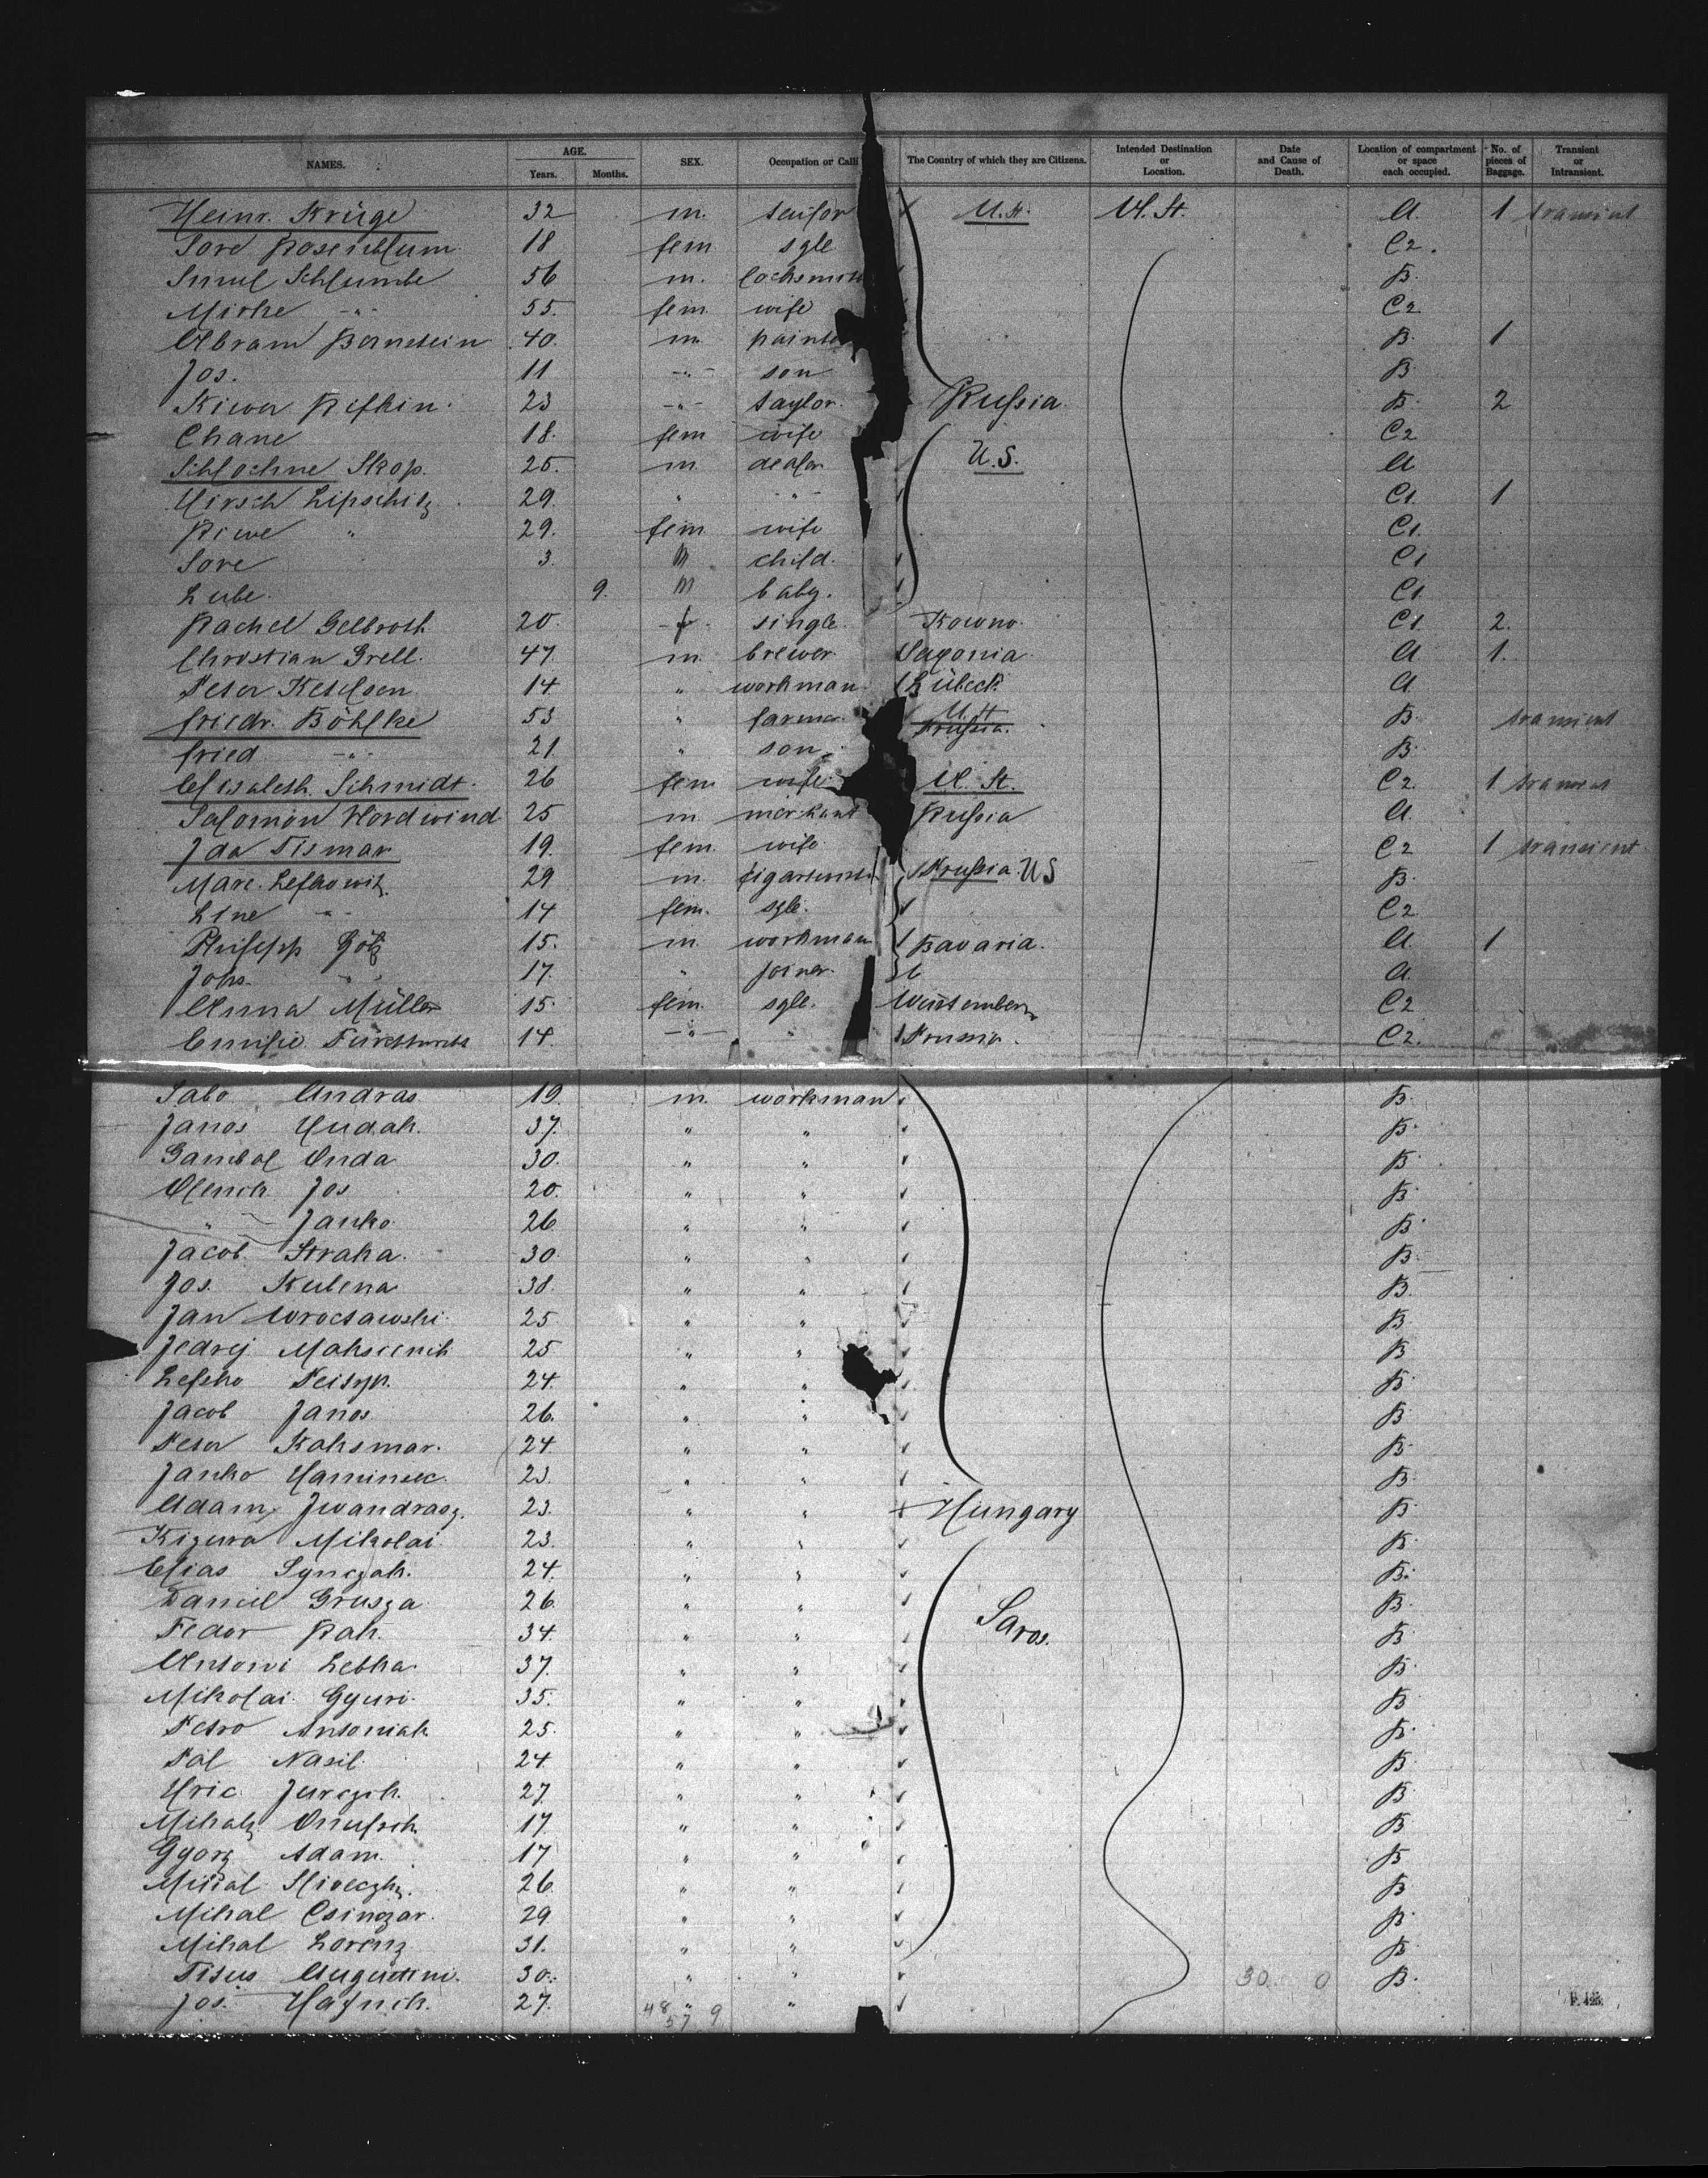 NAMES. AGE. Years. Months. SEX. Occupation or Calli The Country of which they are Citizens. Intended Destination or Location. Date and Cause of Death. Location of compartment or space each occupied. No. of pieces of Baggage. Transient or Intransient.
Heinr. Krüge 32 m. U.St. U.St. A 1 transient
Sore Rosenblum 18 fem sgle C2.
Smul Schlumbe 56 m. B.
Mirke -"- 55. fem wife C2
Abram Bernstein 40. m painte B. 1
Jos. 11 -"- son B
Kiwer Rifkin. 23 -"- taylor. Russia. B. 2
Chane 18. fem wife C2
Schlochne Skop. 25. m dealer U.S. A
Hirsch Lipschitz 29. " " C1. 1
Riwe " 29. fem. wife C1.
Sore 3. m child. C1
Lube. 9. m baby. C1
Rachel Gelbroth 20. f. single. Kowno. C1 2.
Christian Grell. 47. m. brewer Saxonia A 1.
Peter 14 " workman Lübeck. A
Friedr. Böhlke 53 " farmer U.St. Prussia. B. transient
Fried -"- 21 " son B.
Elisabeth Schmidt. 26 fem wife U.St. C2. 1 transient
Salomon Wordwind 25 m merkant Russia A.
Ida Tismar 19. fem. wife C2 1 transient
Marc. Lefkowitz. 29 m. Prussia. US B.
Line -"- 14 fem. sgle. C2
Philipp Götz 15. m workman Bavaria. A 1
Johs. " 17. " joiner. A.
Anna Müller 15. fem. sgle. C2
Emilie 14. -"- " Prussia. C2.
Sabo Andras 19. m. workman B.
Janos Hudak. 37. " " B.
Gambal Onda 30. " " B
Olenick Jos 20. " " B.
" Janko 26 " " B
Jacob Straka. 30. " " B.
Jos. Kubena 38. " " B.
Jan Wroctawski. 25. " " B
Jedrej 25 " " B
24. " " B.
Jacob Janos 26. " " B
Peter Kaksmar. 24. " " B.
Janko 23. " " B.
Adam Iwandrasz. 23. " " Hungary B
Kizura Mikolai 23. " " B.
Elias Synczak. 24. " " B.
Daniel Grusza 26. " " Saros. B.
Fedor Rak. 34. " " B
Antoni Lebka. 37. " " B.
Mikolai Gyuri. 35. " " B
Petro Antoniak 25. " " B.
Pal Wasil. 24. " " B
Hric Jurczik. 27. " " B
Mihaly 17. " " B
Gyorg Adam. 17 " " B
Mihal 26. " " B
Mihal Csinczar. 29 " " B.
Mihal Lorenz 31. " " B
Titus Augustini. 30. " " 30. 0 B.
Jos. 27. " "
48 57 9